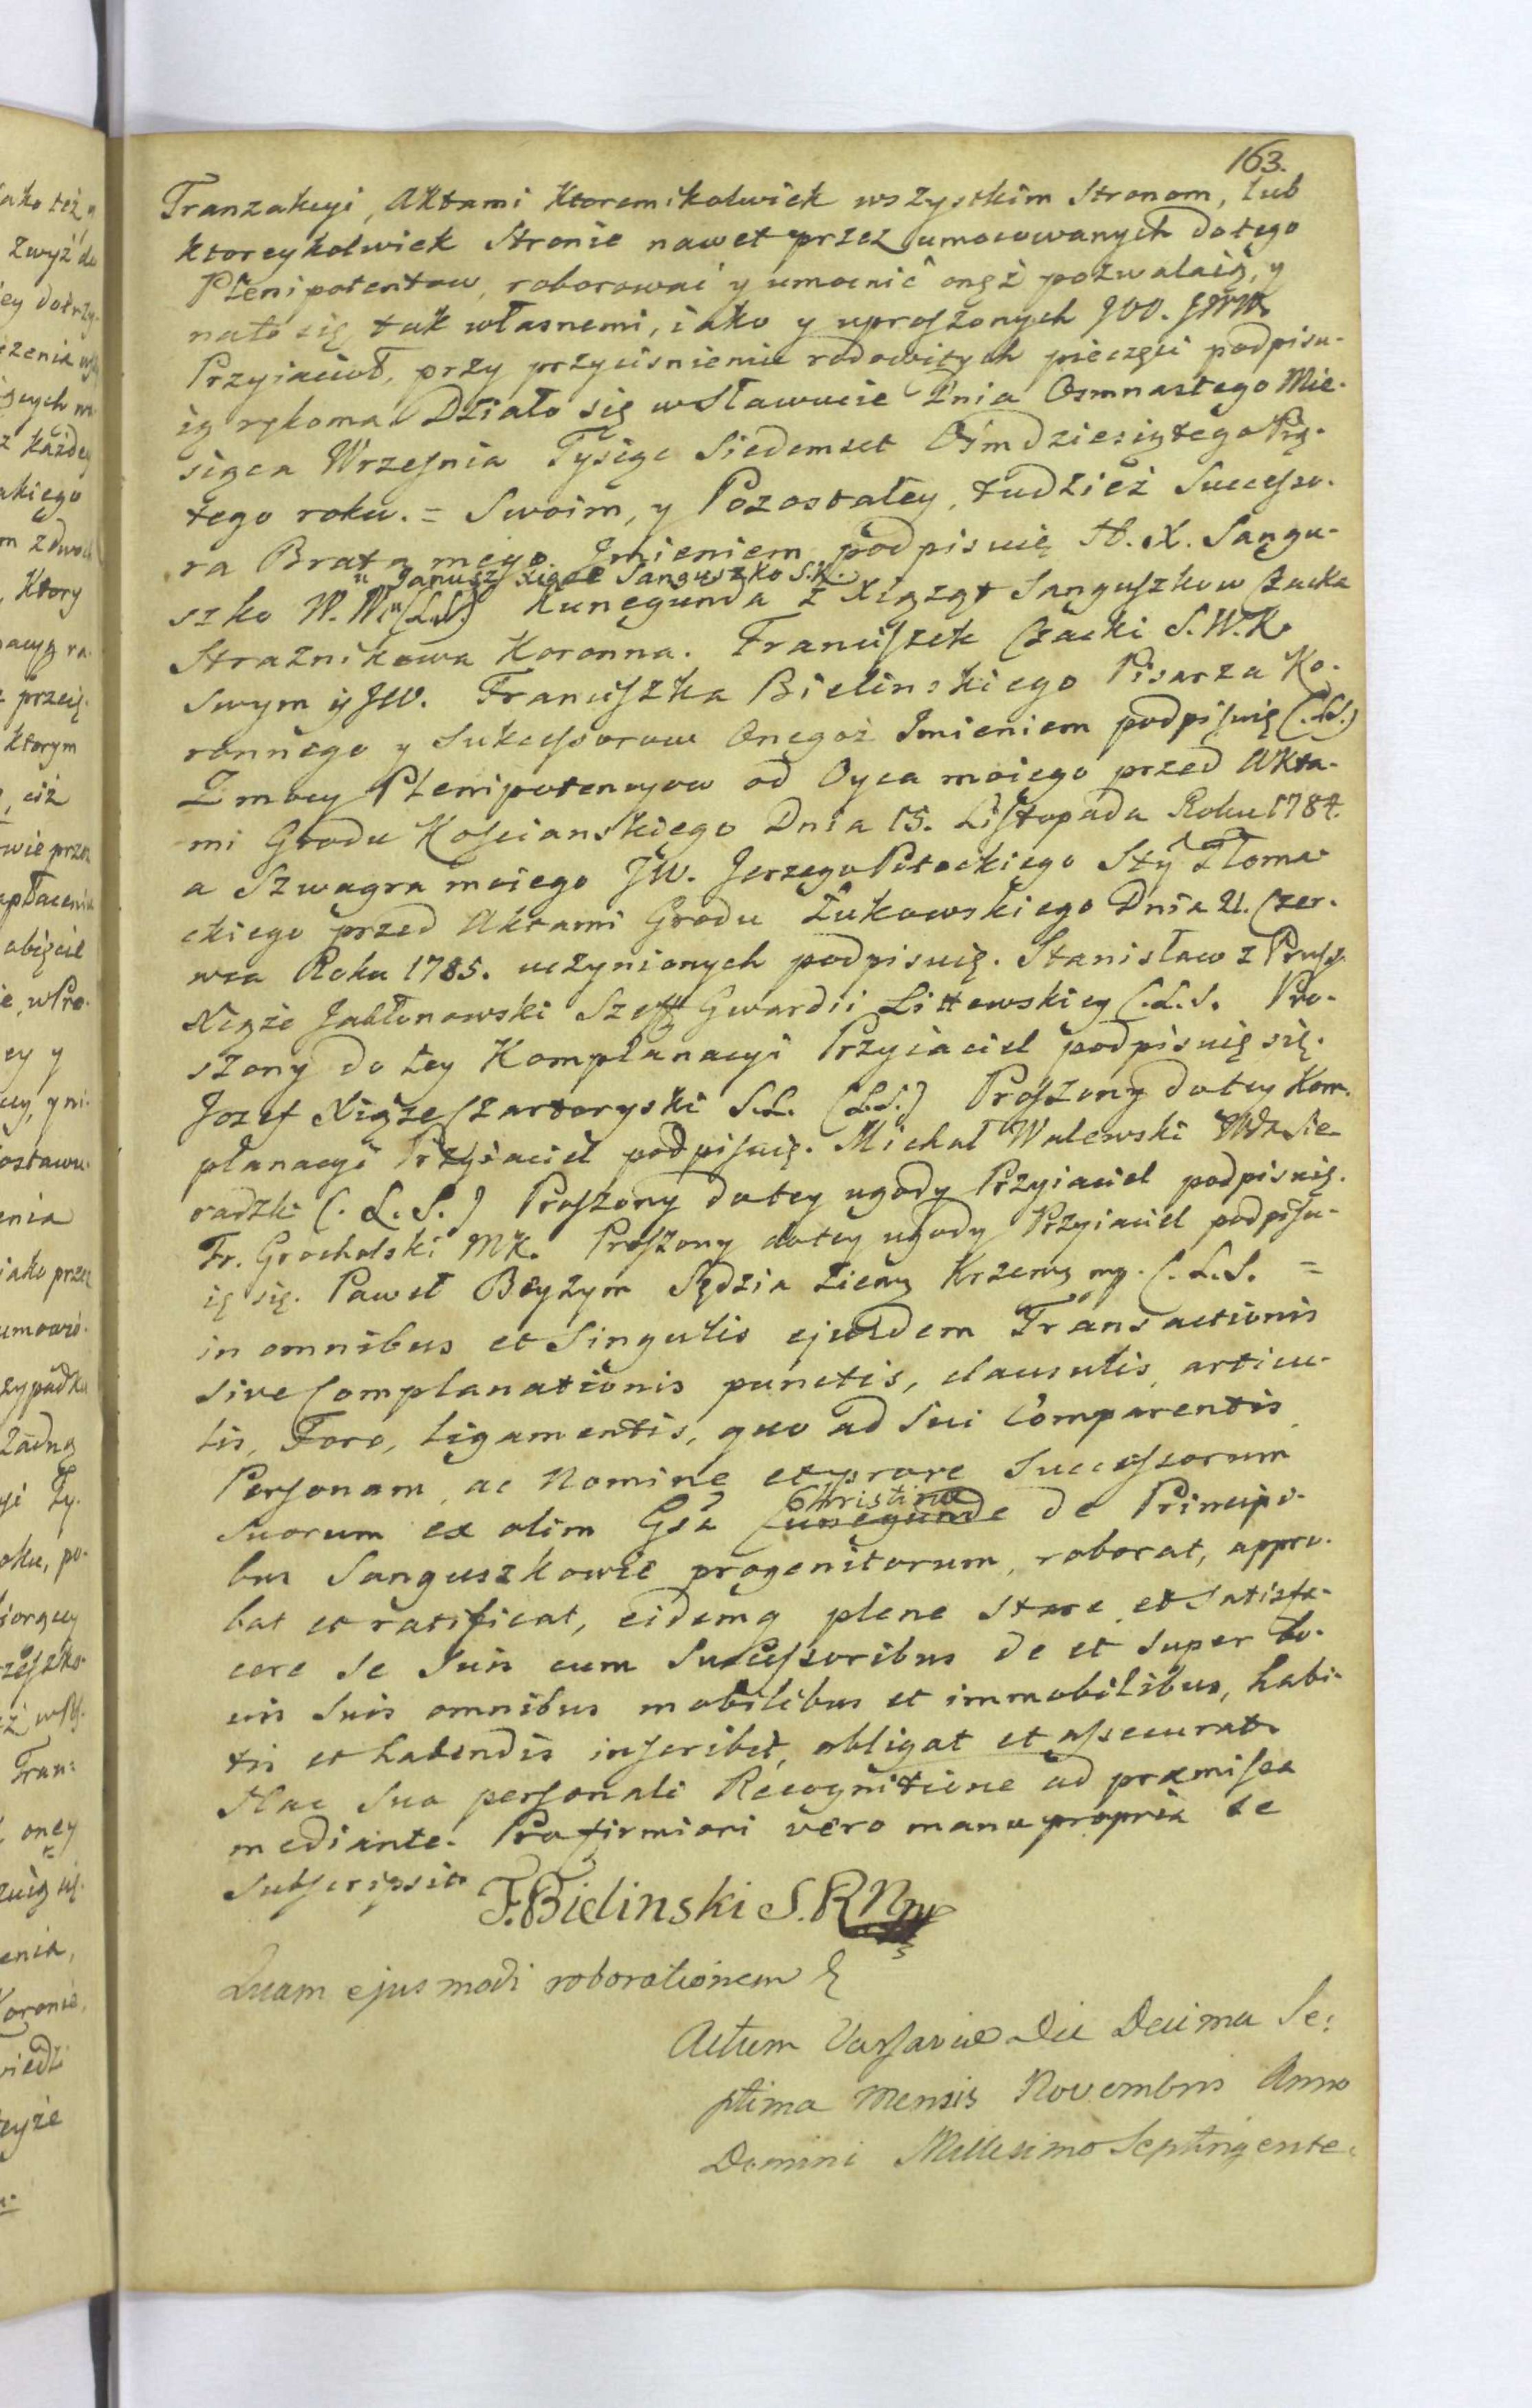 163.
Tranzakcyi, Aktami ktoremikolwiek wszystkim Stronom, lub
ktoreykolwiek Stronie nawet przez umocowanych do tego
Plenipotentow, roborować y umocnić onęż pozwalaią, y
nato się tak własnemi, iako y uproszonych JOO. JWW.
Przyiacioł, przy przyciśnieniu rodowitych pieczęci podpisu-
ią rękoma. Działo się w Sławucie Dnia Osmnastego Mie-
siąca Wrzesnia Tysiąc Siedemset Osmdziesiątego Pią-
tego roku. = Swoim, y Pozostałey, tudzież Successo-
ra Brata mego Jmieniem podpisuię H. X. Sangu-
" Janusz Xiąże Sanguszko S.K.
szko W. W. (L.S.) Kunegunda z Xiążąt Sanguszkow Czacka
Strażnikowa Koronna. Franciszek Czacki S.W.K.
Swym y JW. Franciszka Bielinskiego Pisarza Ko-
ronnego y Sukcessorow Onegoż Jmieniem podpisuię (.L.S.)
Z mocy Plenipotencyow od Oyca moiego przed Akta-
mi Grodu Kościanskiego Dnia 15. Listopada Roku 1784.
a Szwagra moiego JW. Jerzego Potockiego Stty Tłoma-
ckiego przed Aktami Grodu Łukowskiego Dnia 21. Czer-
wca Roku 1785. uczynionych podpisuię. Stanisław z Pruss
Xiąże Jabłonowski Szeff Gwardii Littewskiey (.L.S. Pro-
szony do tey Komplanacyi Przyiaciel podpisuię się.
Jozef Xiąże Czartoryski S.L. (L.S.) Proszony do tey Kom-
planacyi Przyiaciel podpisuię. Michał Walewski Wda Sie-
radzki (. L. S.) Proszony do tey ugody Przyiaciel podpisuię.
Fr. Grocholski MK. Proszony do tey ugody Przyiaciel podpisu-
ię się. Paweł Beyzym Sędzia Ziems Krzem mp. (. L.S. =
in omnibus et Singulis ejusdem Transactionis
Sive Complanationis punctis, clausulis, articu-
lis, Foro, ligamentis, quo ad Sui Comparentis
Personam, ac Nomine et prore Successorum
Christina
Suorum ex olim Gsa Cunegunde de Principi-
bus Sanguszkowie progenitorum, roborat, appro-
bat et ratificat, eidemq plene Stare et Satisfa-
cere Se Suis cum Successoribus de et Super bo-
nis Suis omnibus mobilibus et immobilibus, habi-
tis et habendis inscribit, obligat et assecurat.
Hac Sua personali Recognitione ad præmissa
mediante. Pro firmiori vero manu propria se
Subscripsit.
F. Bielinski S.R
Quam ejusmodi roborationem
Actum Varsaviæ Die Decima Se:
ptima Mensis Novembris Anno
Domini Millesimo Septingente-